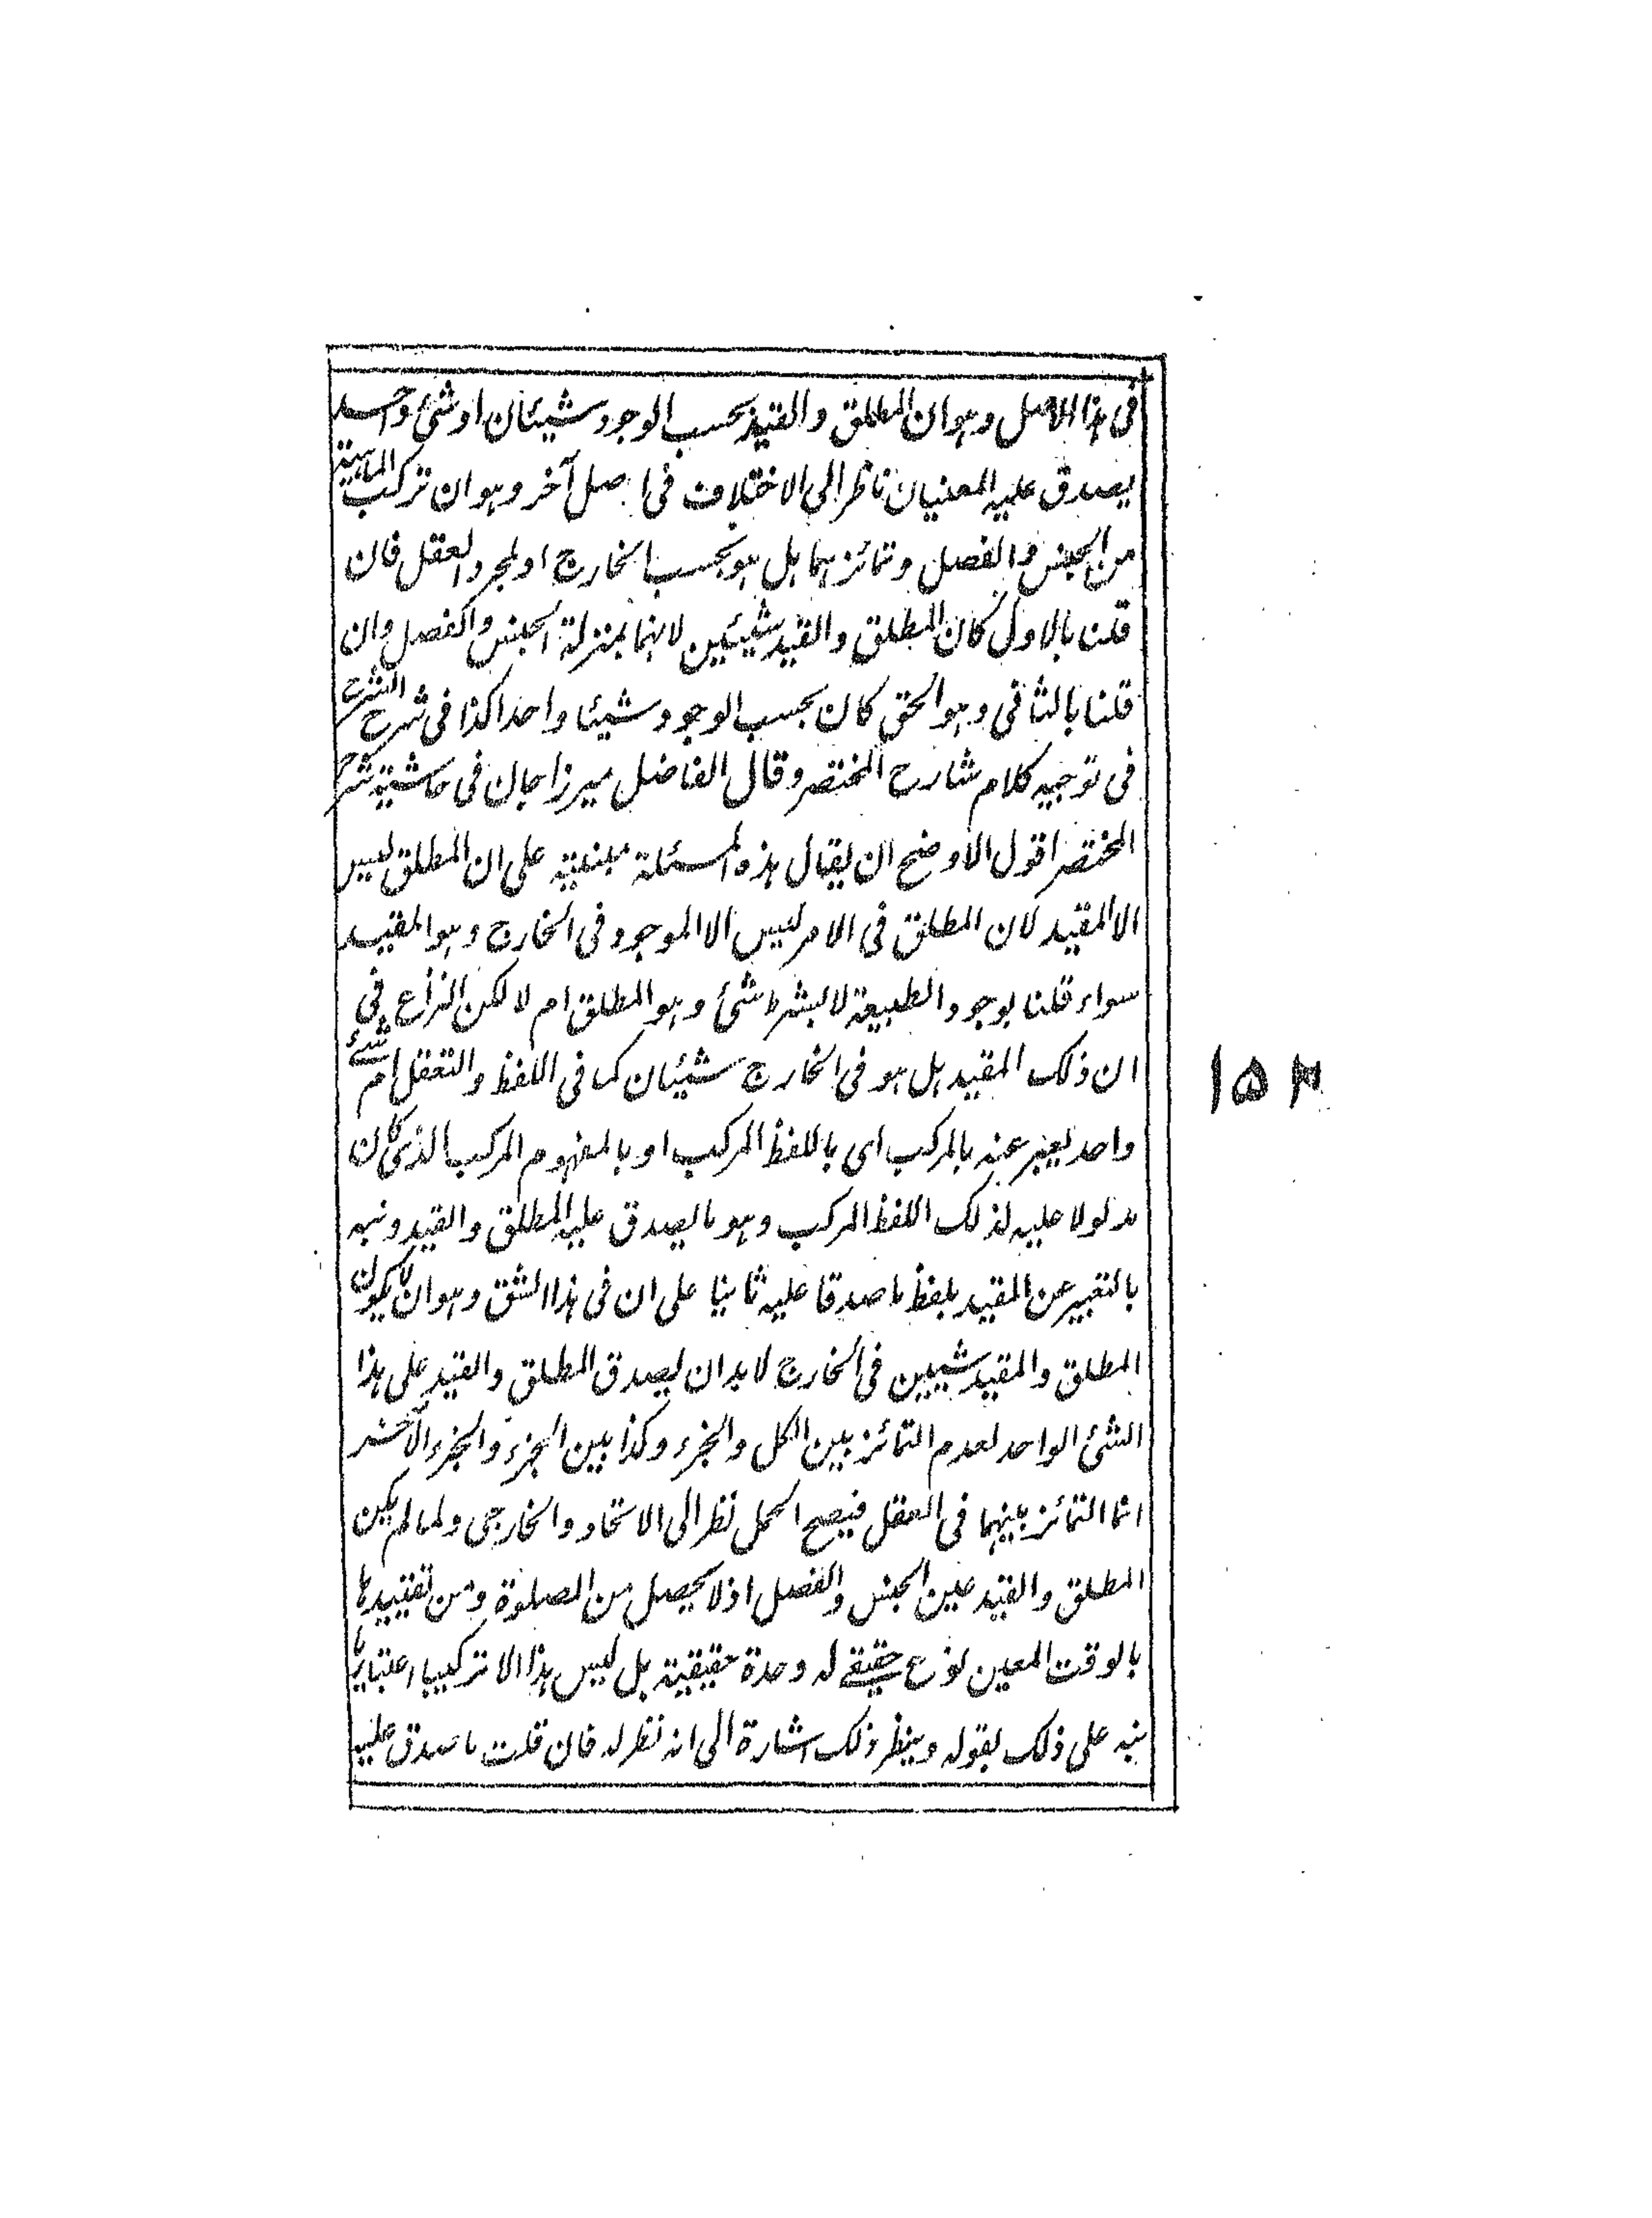 فى هذا الاصل وهو ان المطلق والقيد بحسب الوجود شيئان او شئ واحد
يصدق عليه المعنيان ناظر الى الاختلاف فى اصل آخر وهو ان تركب الماهية
من الجنس والفصل وتمائزهما هل هو بحسب الخارج او لمجرد العقل فان
قلنا بالاول كان المطلق والقيد شيئين لانهما بمنزلة الجنس والفصل وان
قلنا بالثانى وهو الحق كان بحسب الوجود شيئا واحدا كذا فى شرح الشرح
فى توجيه كلام شارح المختصر وقال الفاضل ميرزا جان فى حاشية شرح
المختصر اقول الاوضح ان يقال هذه المسئلة مبنية على ان المطلق ليس
الا المقيد لان المطلق فى الامر ليس الا الموجود فى الخارج وهو المقيد
سواء قلنا بوجود الطبيعة لا بشرط شئ وهو المطلق ام لا لكن النزاع فى
ان ذلك المقيد هل هو فى الخارج شيئان كما فى اللفظ والتعقل ام شئ
واحد يعبر عنه بالمركب اى باللفظ المركب او بالمفهوم المركب الذى كان
مدلولا عليه لذلك اللفظ المركب وهو ما يصدق عليه المطلق والقيد ونبه
بالتعبير عن المقيد بلفظ ما صدقا عليه ثانيا على ان فى هذا الشق وهو ان لا يكون
المطلق والمقيد شيئين فى الخارج لا بد ان يصدق المطلق والقيد على هذا
الشئ الواحد لعدم التمائز بين الكل والجزء وكذا بين الجزء والجزء الآخر
انما التمائز بينهما فى العقل فيصح الحمل نظر الى الاتحاد والخارجى ولما لم يكن
المطلق والقيد عين الجنس والفصل اذ لا يحصل من الصلوة ومن تقييدها
بالوقت المعين نوع حقيقے له وحدة حقيقية بل ليس هذا الا تركيبا اعتباريا
نبه على ذلك بقوله وينظر ذلك اشارة الى انه نظر له فان قلت ما صدق عليه
۱۵۳